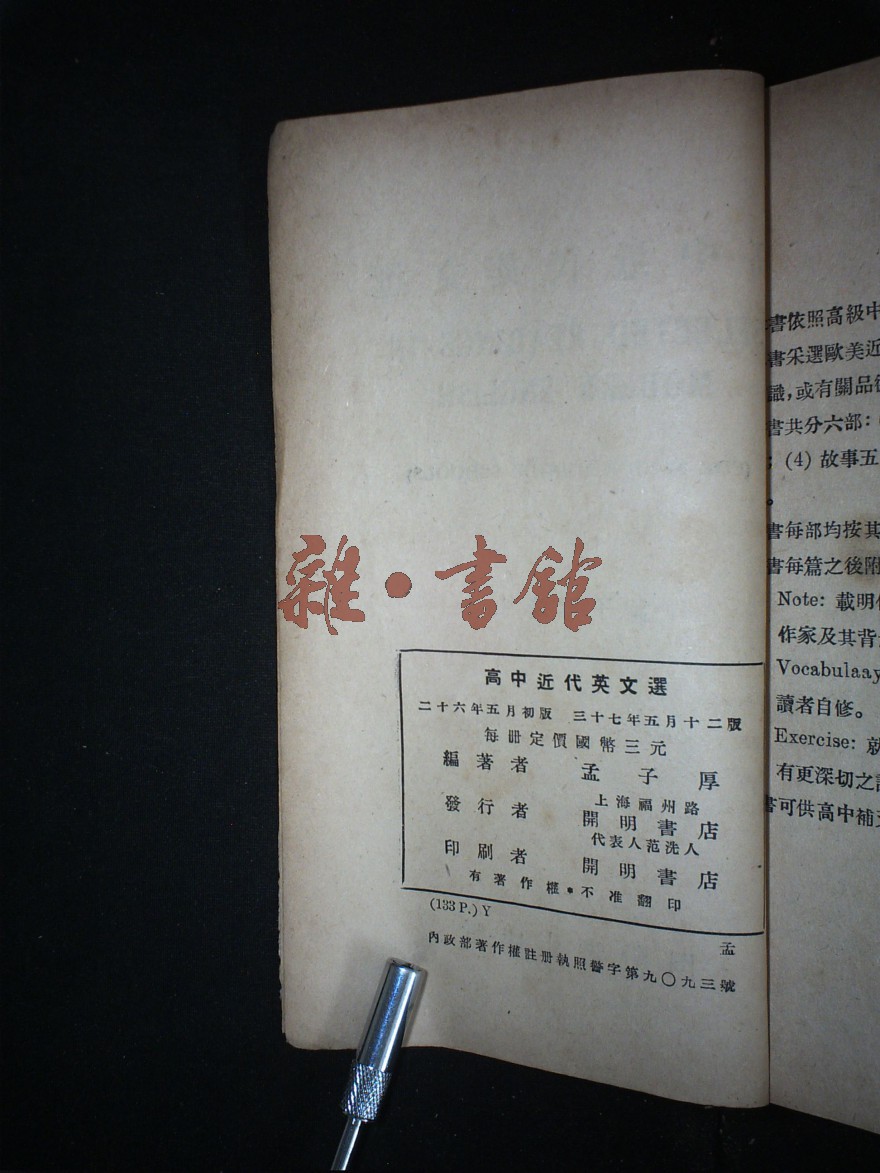 雜·書館
高中近代英文選
二十六年五月初版 三十七年五月十二版
每冊定價國幣三元
編著者 孟子厚
發行者 上海福州路
開明書店
代表人范洗人
印刷者 開明書店
有著作權·不准翻印
(133 P.) Y 孟
內政部著作權註冊執照警字第九〇九三號
書依照高級中
書采選歐美近
識,或有關品德
書共分六部:
; (4) 故事五
。
書每部均按其
書每篇之後附
Note: 載明作
作家及其背
Vocabulaay
讀者自修。
Exercise: 就
有更深切之
書可供高中補充